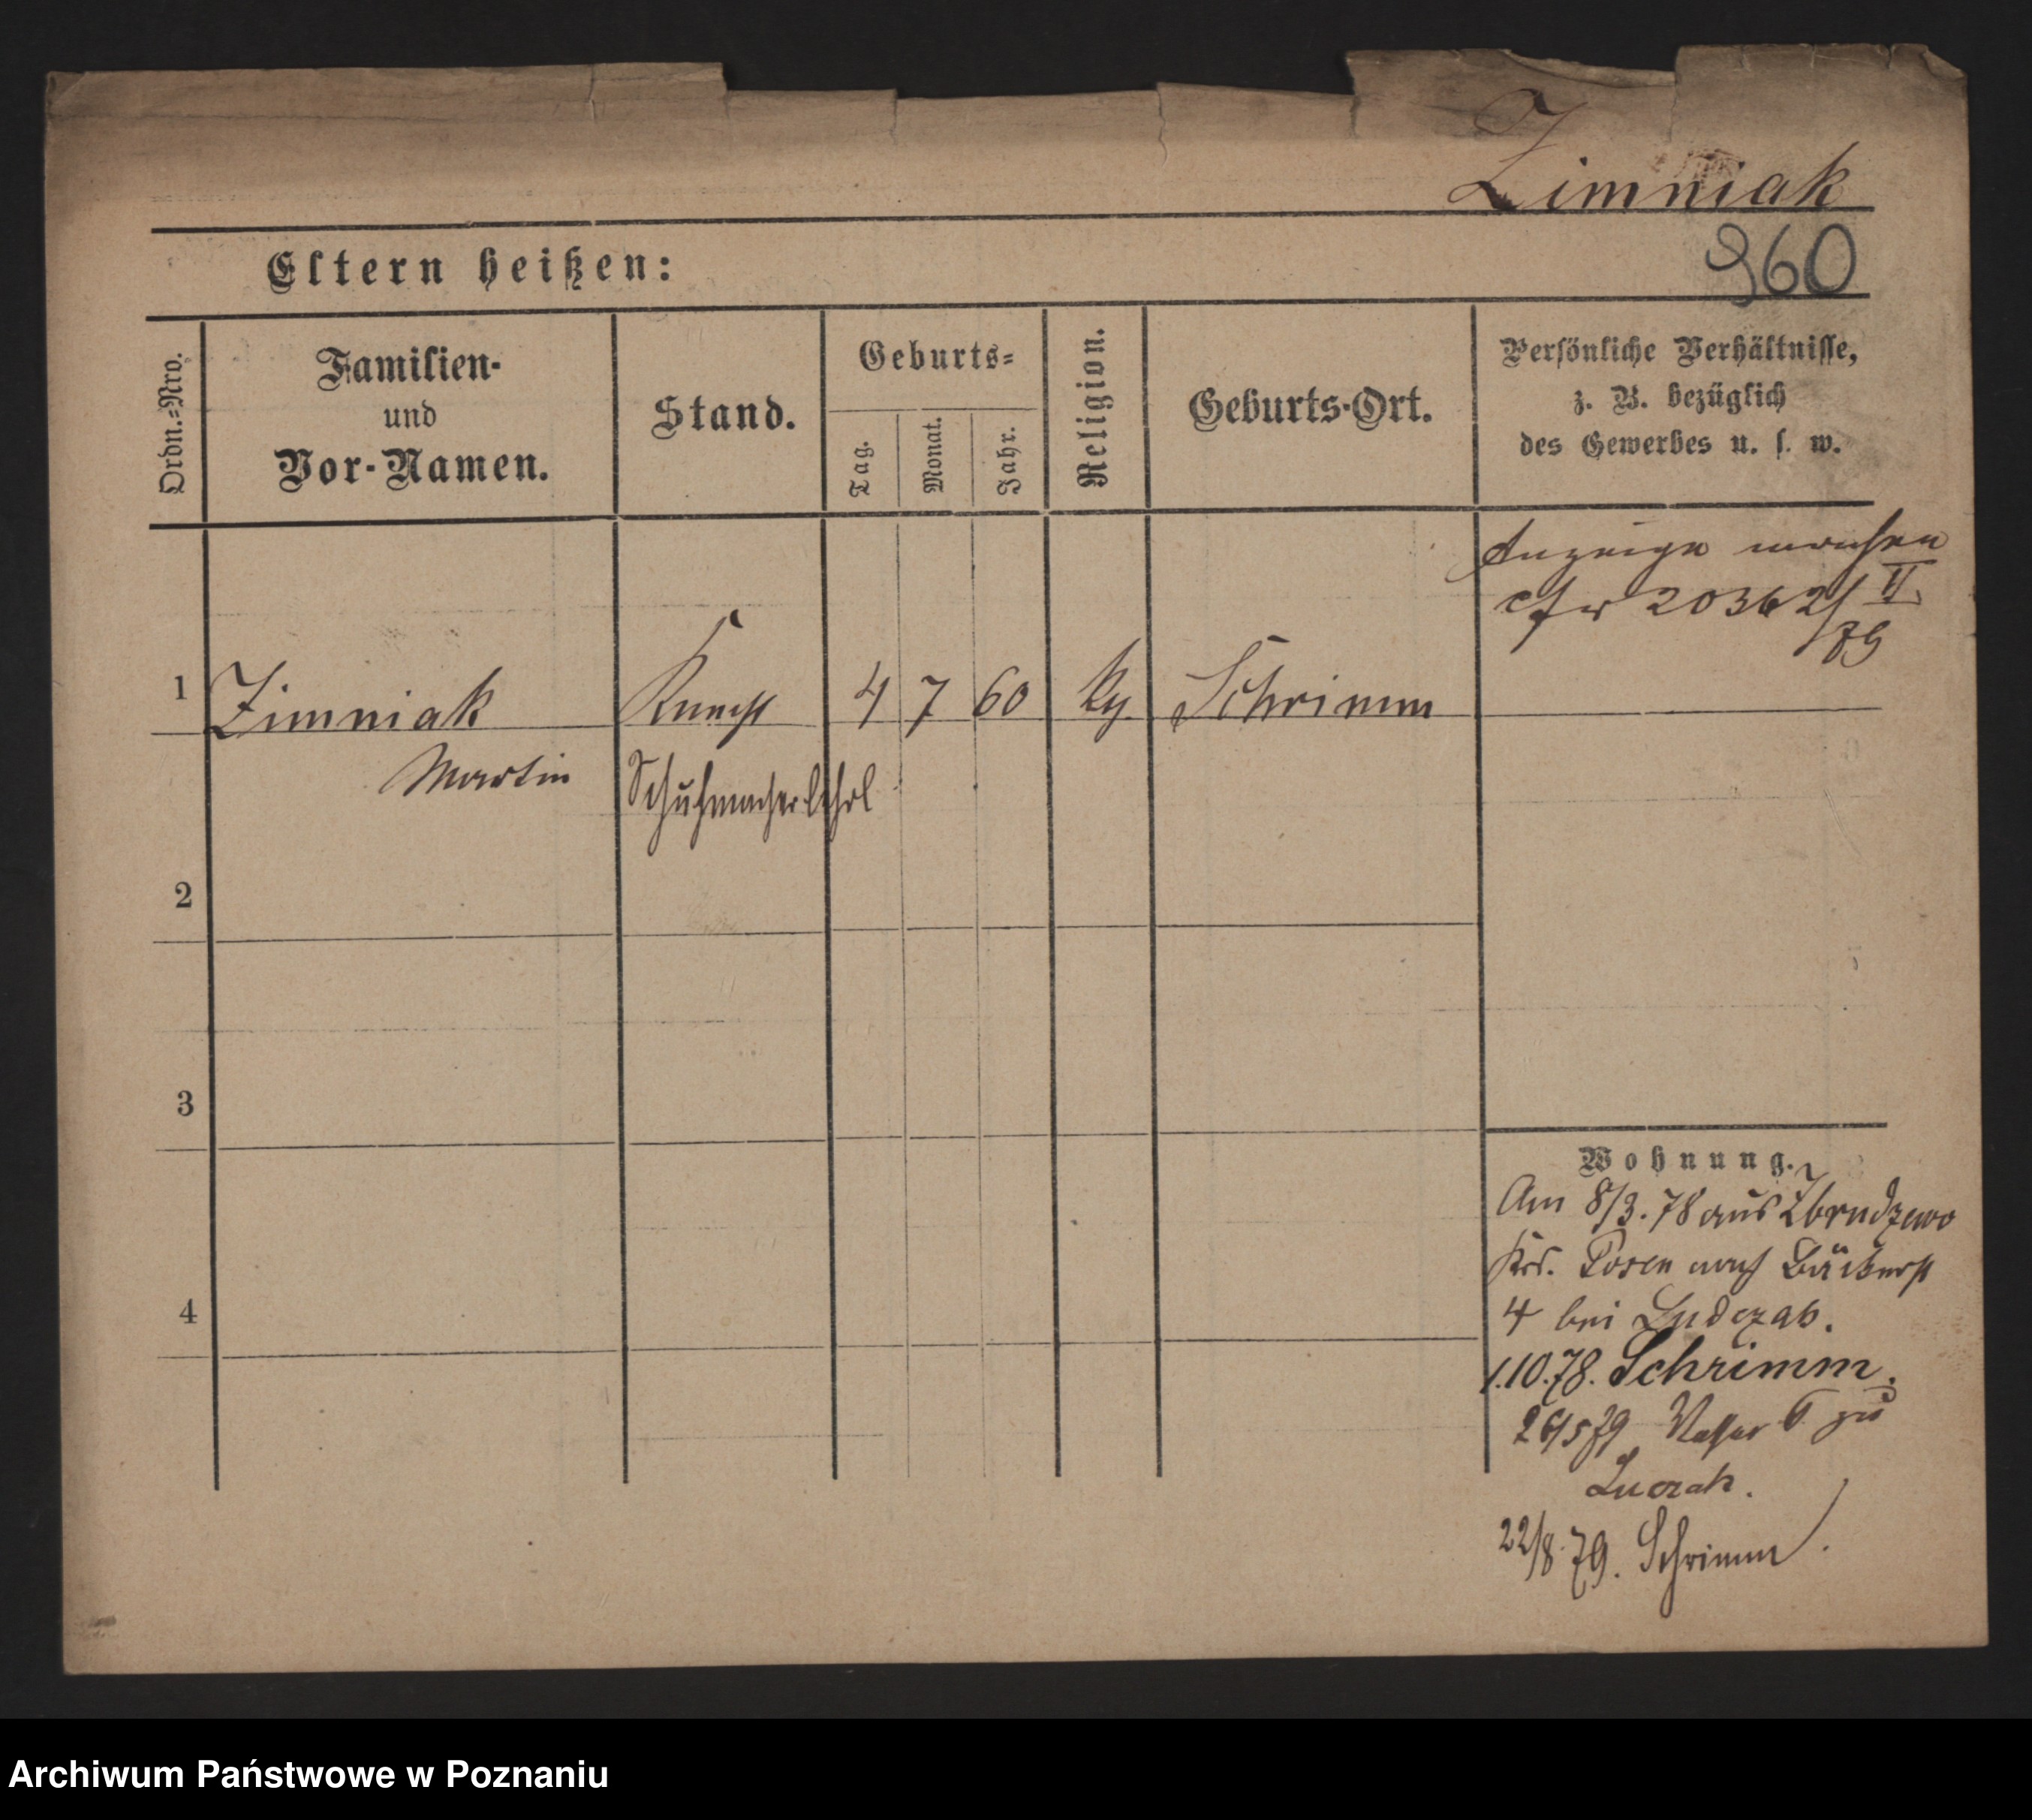 Zimniak
960
Eltern heißen:
Ordn.=Nro.
Familien-
und
Vor-Namen.
Stand.
Geburts=
Tag.
Monat.
Jahr.
Religion.
Geburts-Ort.
Persönliche Verhältnisse,
z. B. bezüglich
des Gewerbes u. s. w.
Anzeige machen
20362/ II
79
1 Zimniak Knecht 4 7 60 Schrimm
Martin Schuhmacherlehrl
2
3
4
Wohnung.
Am 8/3. 78 aus Zbrudzewo
Krs. Posen nach Bäckerst
4 bei Ludczak.
1.10.78. Schrimm.
26/5 79 6 zu
Luczak.
22/8. 79. Schrimm.
Archiwum Państwowe w Poznaniu